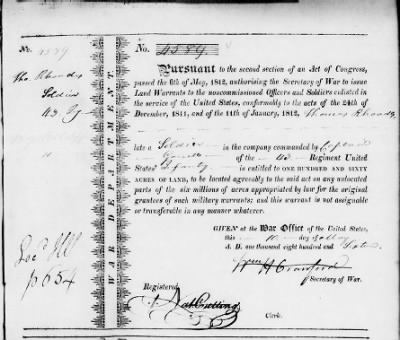 No. 4589
No. 4589
Pursuant to the second section of an Act of Congress,
passed the 6th of May, 1812, authorising the Secretary of War to issue
Land Warrants to the noncommissioned Officers and Soldiers enlisted in
the service of the United States, conformably to the acts of the 24th of
December, 1811, and of the 11th of January, 1812, Thomas Rhoads
Tho. Rhoads
Soldier
43 Inf
late a Soldier in the company commanded by Captain
of the 43 Regiment United
States Infantry is entitled to ONE HUNDRED AND SIXTY
ACRES OF LAND, to be located agreeably to the said act on any unlocated
parts of the six millions of acres appropriated by law for the original
grantees of such military warrants; and this warrant is not assignable
or transferable in any manner whatever.
GIVEN at the War Office of the United States,
this day of May
A. D. one thousand eight hundred and Sixteen
Wm H Crawford
Secretary of War.
Registered
Clerk.
WAR DEPARTMENT.
Rec'd
p 654